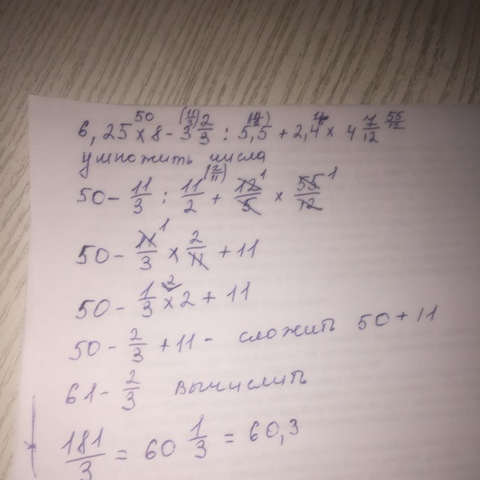 6,25 × 8 - 3 2/3 : 5,5 + 2,4 × 4 7/12 55/12
умножить числа
50 - 11/3 : 11/2 + 12/5 × 55/12
50 - 11/3 × 2/11 + 11
50 - 1/3 × 2 + 11
50 - 2/3 + 11 - сложить 50 + 11
61 - 2/3 вычислить
181/3 = 60 1/3 = 60,3